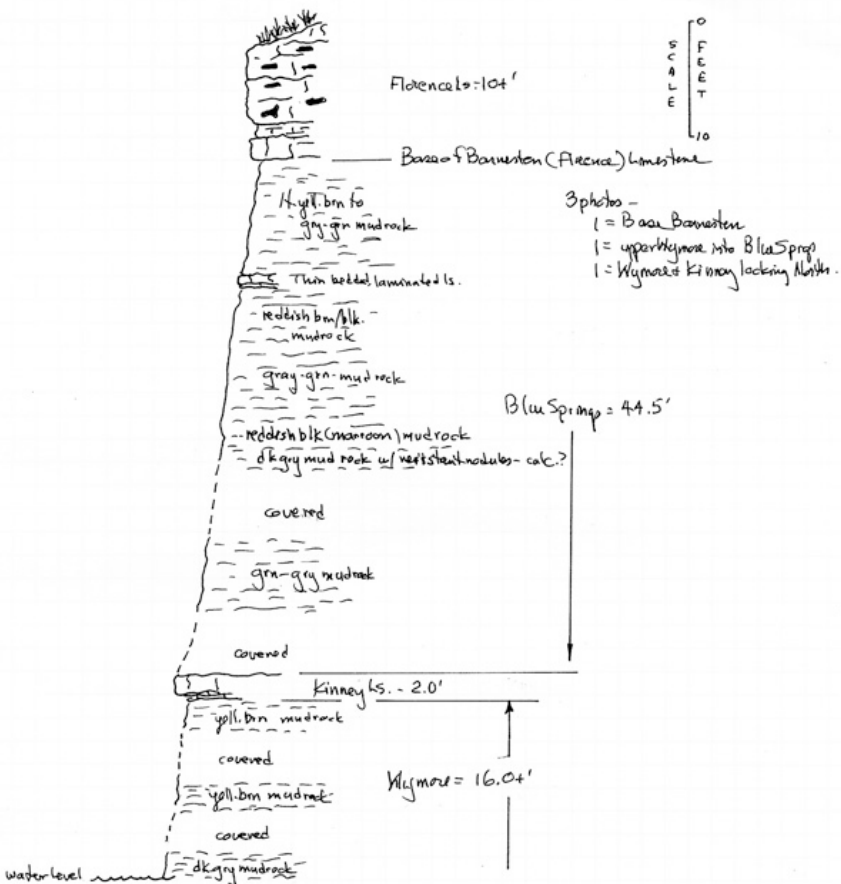 Florence ls = 10+'
0
SCALE
FEET
10
Base of Barneston (Florence) Limestone
3 photos -
1 = Base Barneston
1 = upper Wymore into Blue Sprgs
1 = Wymore & Kinney looking North.
lt. yell. brn to
gry-grn mudrock
Thin bedded, laminated ls.
reddish brn/blk.
mudrock
gray-grn-mudrock
Blue Springs = 44.5'
reddish blk (maroon) mudrock
dk gry mud rock w/ resistant nodules - calc.?
covered
grn-gry mudrock
covered
Kinney Ls. - 2.0'
yell. brn mudrock
covered
Wymore = 16.0+'
yell. brn mudrock
covered
dk gry mudrock
water level